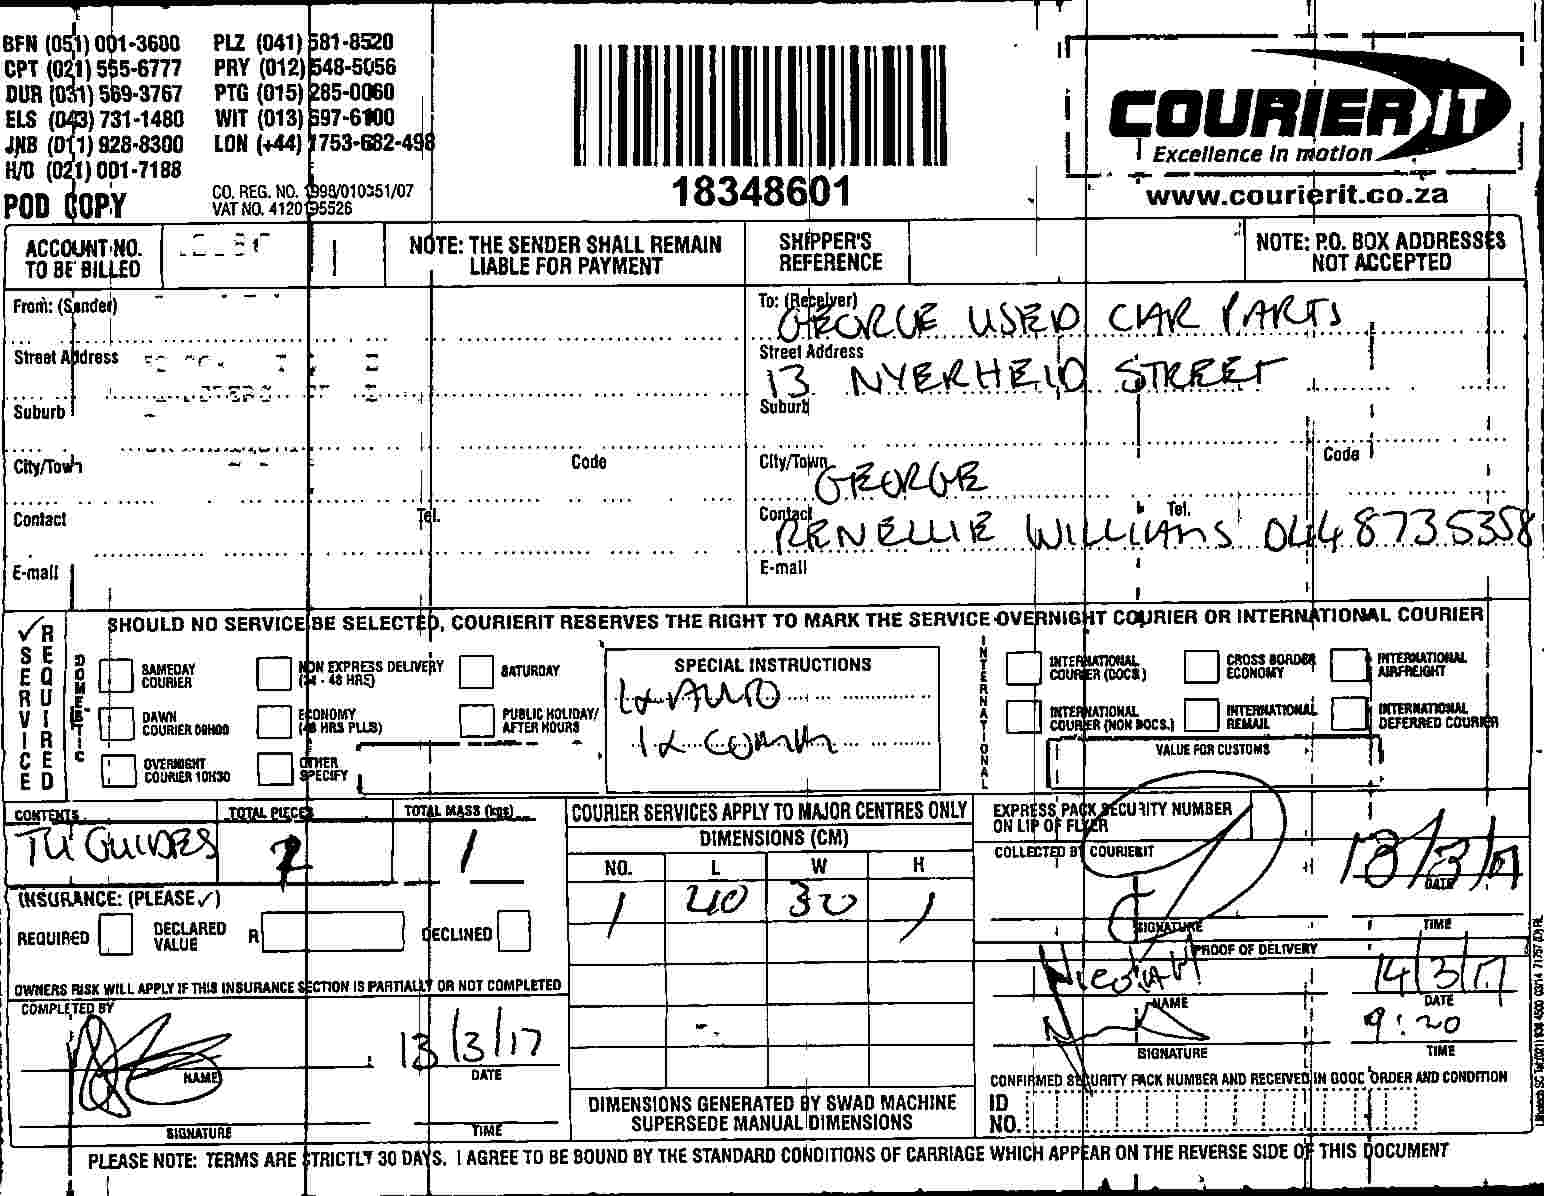 BFN (051) 001-3600 PLZ (041) 581-8520
CPT (021) 555-6777 PRY (012) 548-5056
DUR (031) 569-3767 PTG (015) 285-0060
ELS (043) 731-1480 WIT (013) 697-6100
JNB (011) 928-8300 LON (+44) 1753-682-498
H/O (021) 001-7188
POD COPY
CO. REG. NO. 1998/010351/07
VAT NO. 4120195526
18348601
COURIER IT
Excellence in motion
www.courierit.co.za
ACCOUNT NO. TO BE BILLED
NOTE: THE SENDER SHALL REMAIN LIABLE FOR PAYMENT
SHIPPER'S REFERENCE
NOTE: P.O. BOX ADDRESSES NOT ACCEPTED
From: (Sender)
Street Address
Suburb
City/Town Code
Contact Tel.
E-mail
To: (Receiver)
GEORGE USED CAR PARTS
Street Address
13 NYERHEID STREET
Suburb
City/Town Code
GEORGE
Contact Tel.
RENELLIE WILLIAMS 044 8735358
E-mail
✓ SERVICE REQUIRED
SHOULD NO SERVICE BE SELECTED, COURIERIT RESERVES THE RIGHT TO MARK THE SERVICE OVERNIGHT COURIER OR INTERNATIONAL COURIER
DOMESTIC
SAMEDAY COURIER
NON EXPRESS DELIVERY (24 - 48 HRS)
SATURDAY
DAWN COURIER 09H00
ECONOMY (48 HRS PLUS)
PUBLIC HOLIDAY/ AFTER HOURS
OVERNIGHT COURIER 10H30
OTHER SPECIFY
SPECIAL INSTRUCTIONS
1x AUTO
1x COMM
INTERNATIONAL
INTERNATIONAL COURIER (DOCS)
CROSS BORDER ECONOMY
INTERNATIONAL AIRFREIGHT
INTERNATIONAL COURIER (NON DOCS.)
INTERNATIONAL REMAIL
INTERNATIONAL DEFERRED COURIER
VALUE FOR CUSTOMS
CONTENTS TOTAL PIECES TOTAL MASS (kgs)
TU GUIDES 2 1
INSURANCE: (PLEASE ✓)
REQUIRED DECLARED VALUE R DECLINED
OWNERS RISK WILL APPLY IF THIS INSURANCE SECTION IS PARTIALLY OR NOT COMPLETED
COMPLETED BY
13/3/17
NAME DATE
SIGNATURE TIME
COURIER SERVICES APPLY TO MAJOR CENTRES ONLY
DIMENSIONS (CM)
NO. L W H
1 40 30 1
DIMENSIONS GENERATED BY SWAD MACHINE SUPERSEDE MANUAL DIMENSIONS
EXPRESS PACK SECURITY NUMBER ON LIP OF FLYER
COLLECTED BY COURIERIT
13/3/17
DATE
SIGNATURE TIME
PROOF OF DELIVERY
14/3/17
NAME DATE
9:20
SIGNATURE TIME
CONFIRMED SECURITY PACK NUMBER AND RECEIVED IN GOOD ORDER AND CONDITION
ID NO.
PLEASE NOTE: TERMS ARE STRICTLY 30 DAYS. I AGREE TO BE BOUND BY THE STANDARD CONDITIONS OF CARRIAGE WHICH APPEAR ON THE REVERSE SIDE OF THIS DOCUMENT